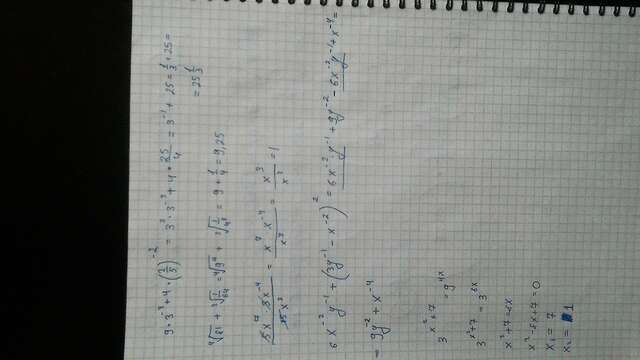 9 · 3⁻³ + 4 · (2/5)⁻² = 3² · 3⁻³ + 4 · 25/4 = 3⁻¹ + 25 = 1/3 + 25 =
= 25 1/3
⁴√81 + ³√(1/64) = ⁴√9⁴ + ³√(1/4³) = 9 + 1/4 = 9,25
(5x⁷ · 3x⁻⁴)/(15x³) = (x⁷ · x⁻⁴)/x³ = x³/x³ = 1
6x⁻²y⁻¹ + (3y⁻¹ - x⁻²)² = 6x⁻²y⁻¹ + 9y⁻² - 6x⁻²y⁻¹ + x⁻⁴ =
= 9y⁻² + x⁻⁴
3^(x²+7) = 9^(4x)
3^(x²+7) = 3^(8x)
x² + 7 = 8x
x² - 8x + 7 = 0
x₁ = 7
x₂ = 1